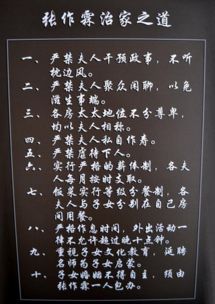 张作霖治家之道
一、严禁夫人干预政事，不听
枕边风。
二、严禁夫人聚众闲聊，以免
滋生事端。
三、各房太太地位不分尊卑，
均以夫人相称。
四、严禁夫人私自作寿。
五、严禁虐待下人。
六、实行严格的薪俸制，各夫
人每月按时支取。
七、饭菜实行等级分餐制，各
夫人与子女分别在自己房
间用餐。
八、严格作息时间，外出活动一
律不允许超过晚十点钟。
九、重视子女文化教育，延聘
名师为子女启蒙。
十、子女婚姻不得自主，须由
张作霖一人包办。